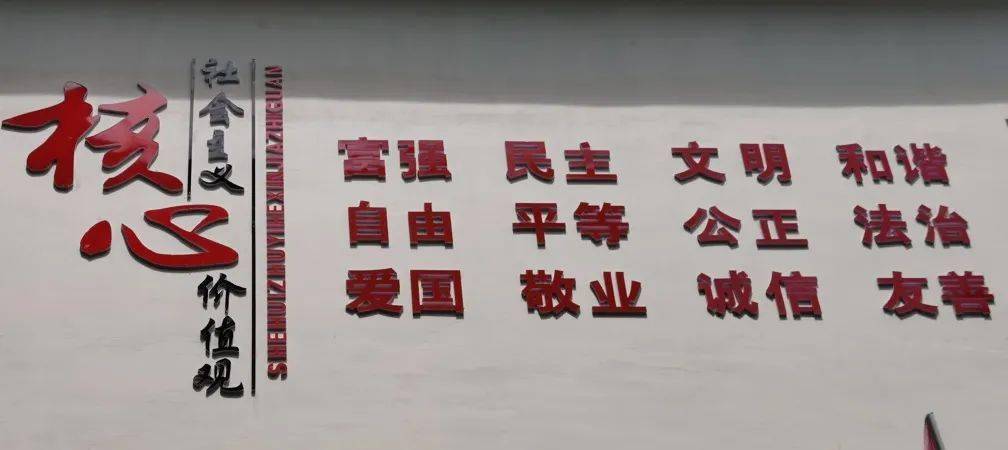 社会主义
核心
价值观
SHEHUIZHUYIHEXINJIAZHIGUAN
富强 民主 文明 和谐
自由 平等 公正 法治
爱国 敬业 诚信 友善